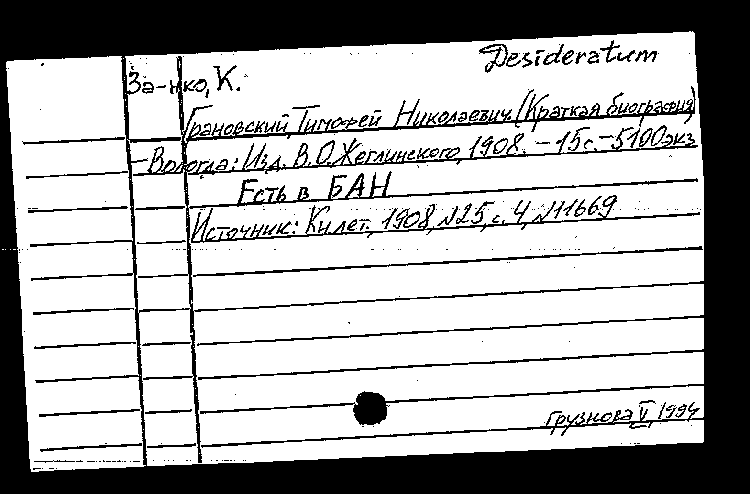 Desideratum
За-нко, К.
Грановский, Тимофей Николаевич. (Краткая биография)
- Вологда: Изд. В.О. Жеглинского, 1908. - 15 с. - 5100 экз
Есть в БАН
Источник: Кн. лет., 1908, №25, с. 4, №11669
Грузнова, V, 1994